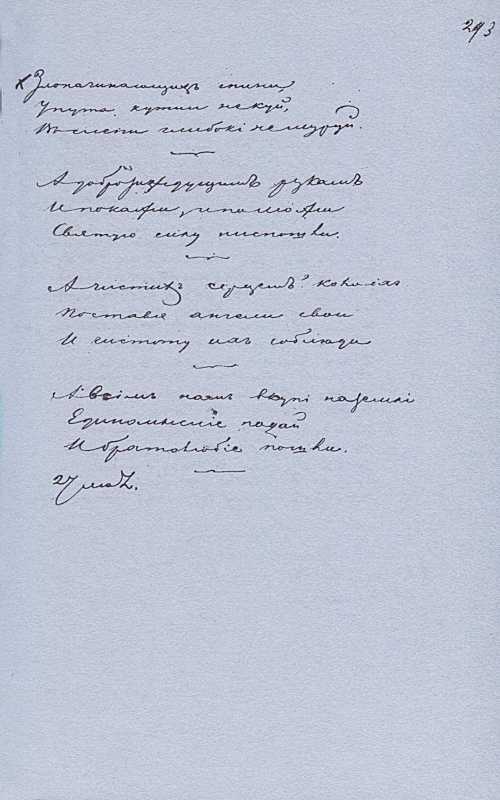 293
Злоначинающихъ спини,
У пута кутии не куй,
Въ склепи глибокі не муруй.
А доброзиждущимъ рукамъ
И покажи, и поможи
Святую силу ниспошли.
А чистихъ серцемъ? коло іхъ
Постави ангели свои
И чистоту ихъ соблюди
А всімъ намъ вкупі на землі
Единомисліе подай
И братолюбіе пошли.
27 мая.